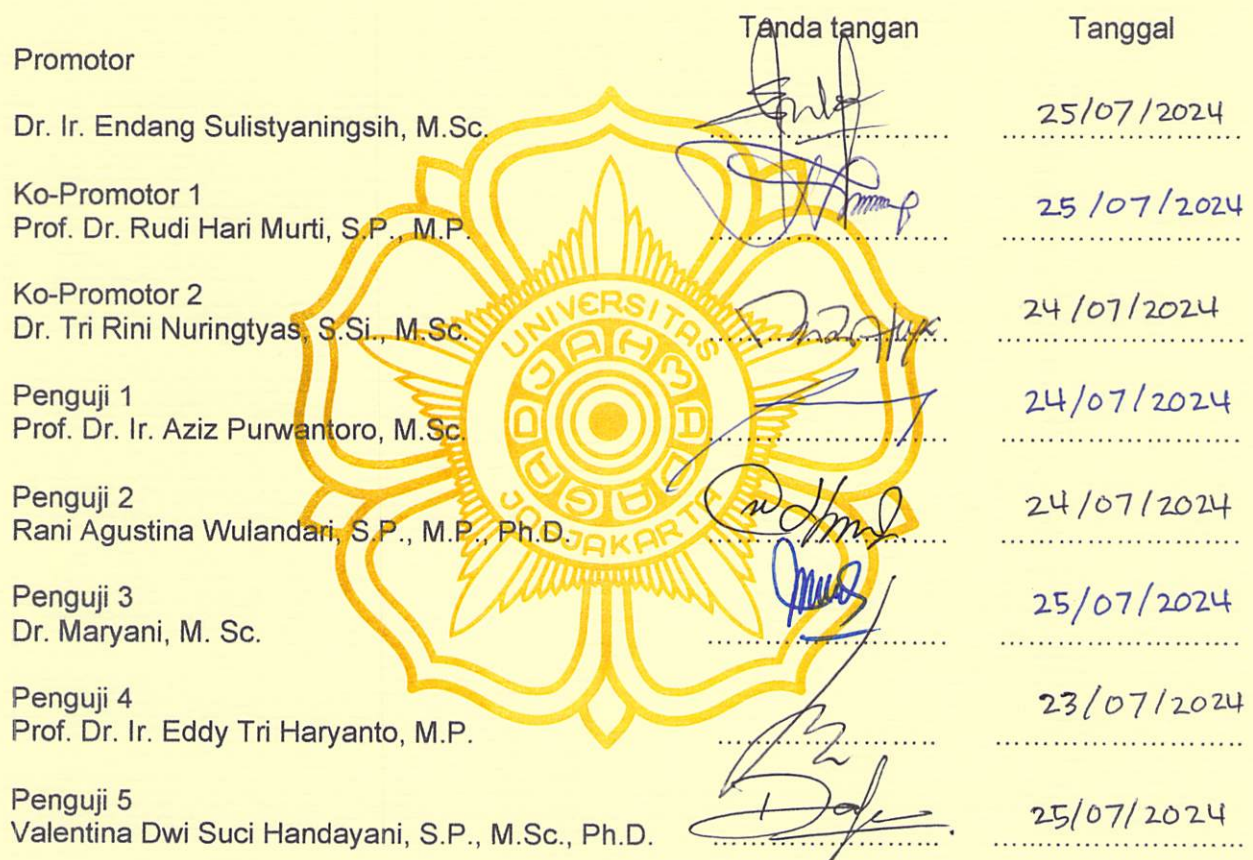 Tanda tangan Tanggal
Promotor
Dr. Ir. Endang Sulistyaningsih, M.Sc. 25/07/2024
Ko-Promotor 1
Prof. Dr. Rudi Hari Murti, S.P., M.P. 25/07/2024
Ko-Promotor 2
Dr. Tri Rini Nuringtyas, S.Si., M.Sc. 24/07/2024
Penguji 1
Prof. Dr. Ir. Aziz Purwantoro, M.Sc. 24/07/2024
Penguji 2
Rani Agustina Wulandari, S.P., M.P., Ph.D. 24/07/2024
Penguji 3
Dr. Maryani, M. Sc. 25/07/2024
Penguji 4
Prof. Dr. Ir. Eddy Tri Haryanto, M.P. 23/07/2024
Penguji 5
Valentina Dwi Suci Handayani, S.P., M.Sc., Ph.D. 25/07/2024
UNIVERSITAS
GADJAH MADA
JOGJAKARTA